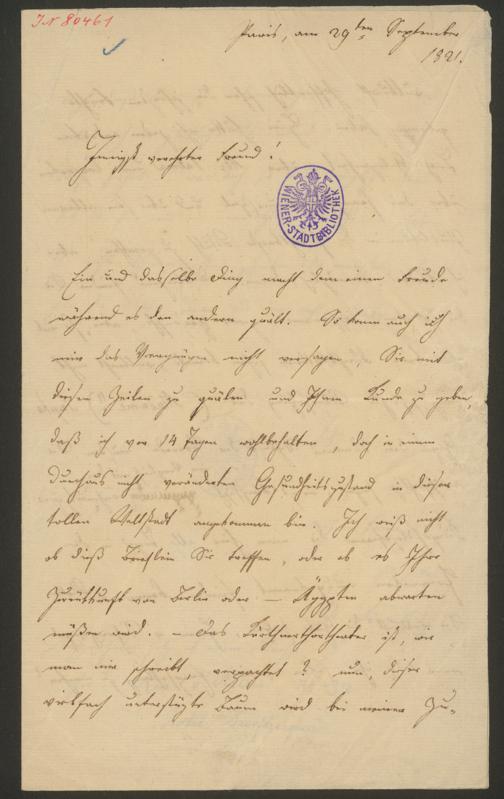 IN 80461
Paris, am 29ten September
1821.
Innigst verehrter Freund!
WIENER-STADTBIBLIOTHEK
Ein und dasselbe Ding macht dem einen Freude
während es den andern quält. So kann auch ich
mir das Vergnügen nicht versagen, Sie mit
diesen Zeilen zu quälen und Ihnen Kunde zu geben,
daß ich vor 14 Tagen wohlbehalten, doch in einem
durchaus nicht veränderten Gesundheitszustand in dieser
tollen Weltstadt angekommen bin. Ich weiß nicht
ob dieß Brieflein Sie treffen, oder ob es Ihre
Zurükkunft von Berlin oder – Ägypten abwarten
müßen wird. – Das Kärthnerthortheater ist, wie
man mir schreibt, verpachtet? nun, dieser
vielfach unterstüzte Baum wird bei meiner Zu-